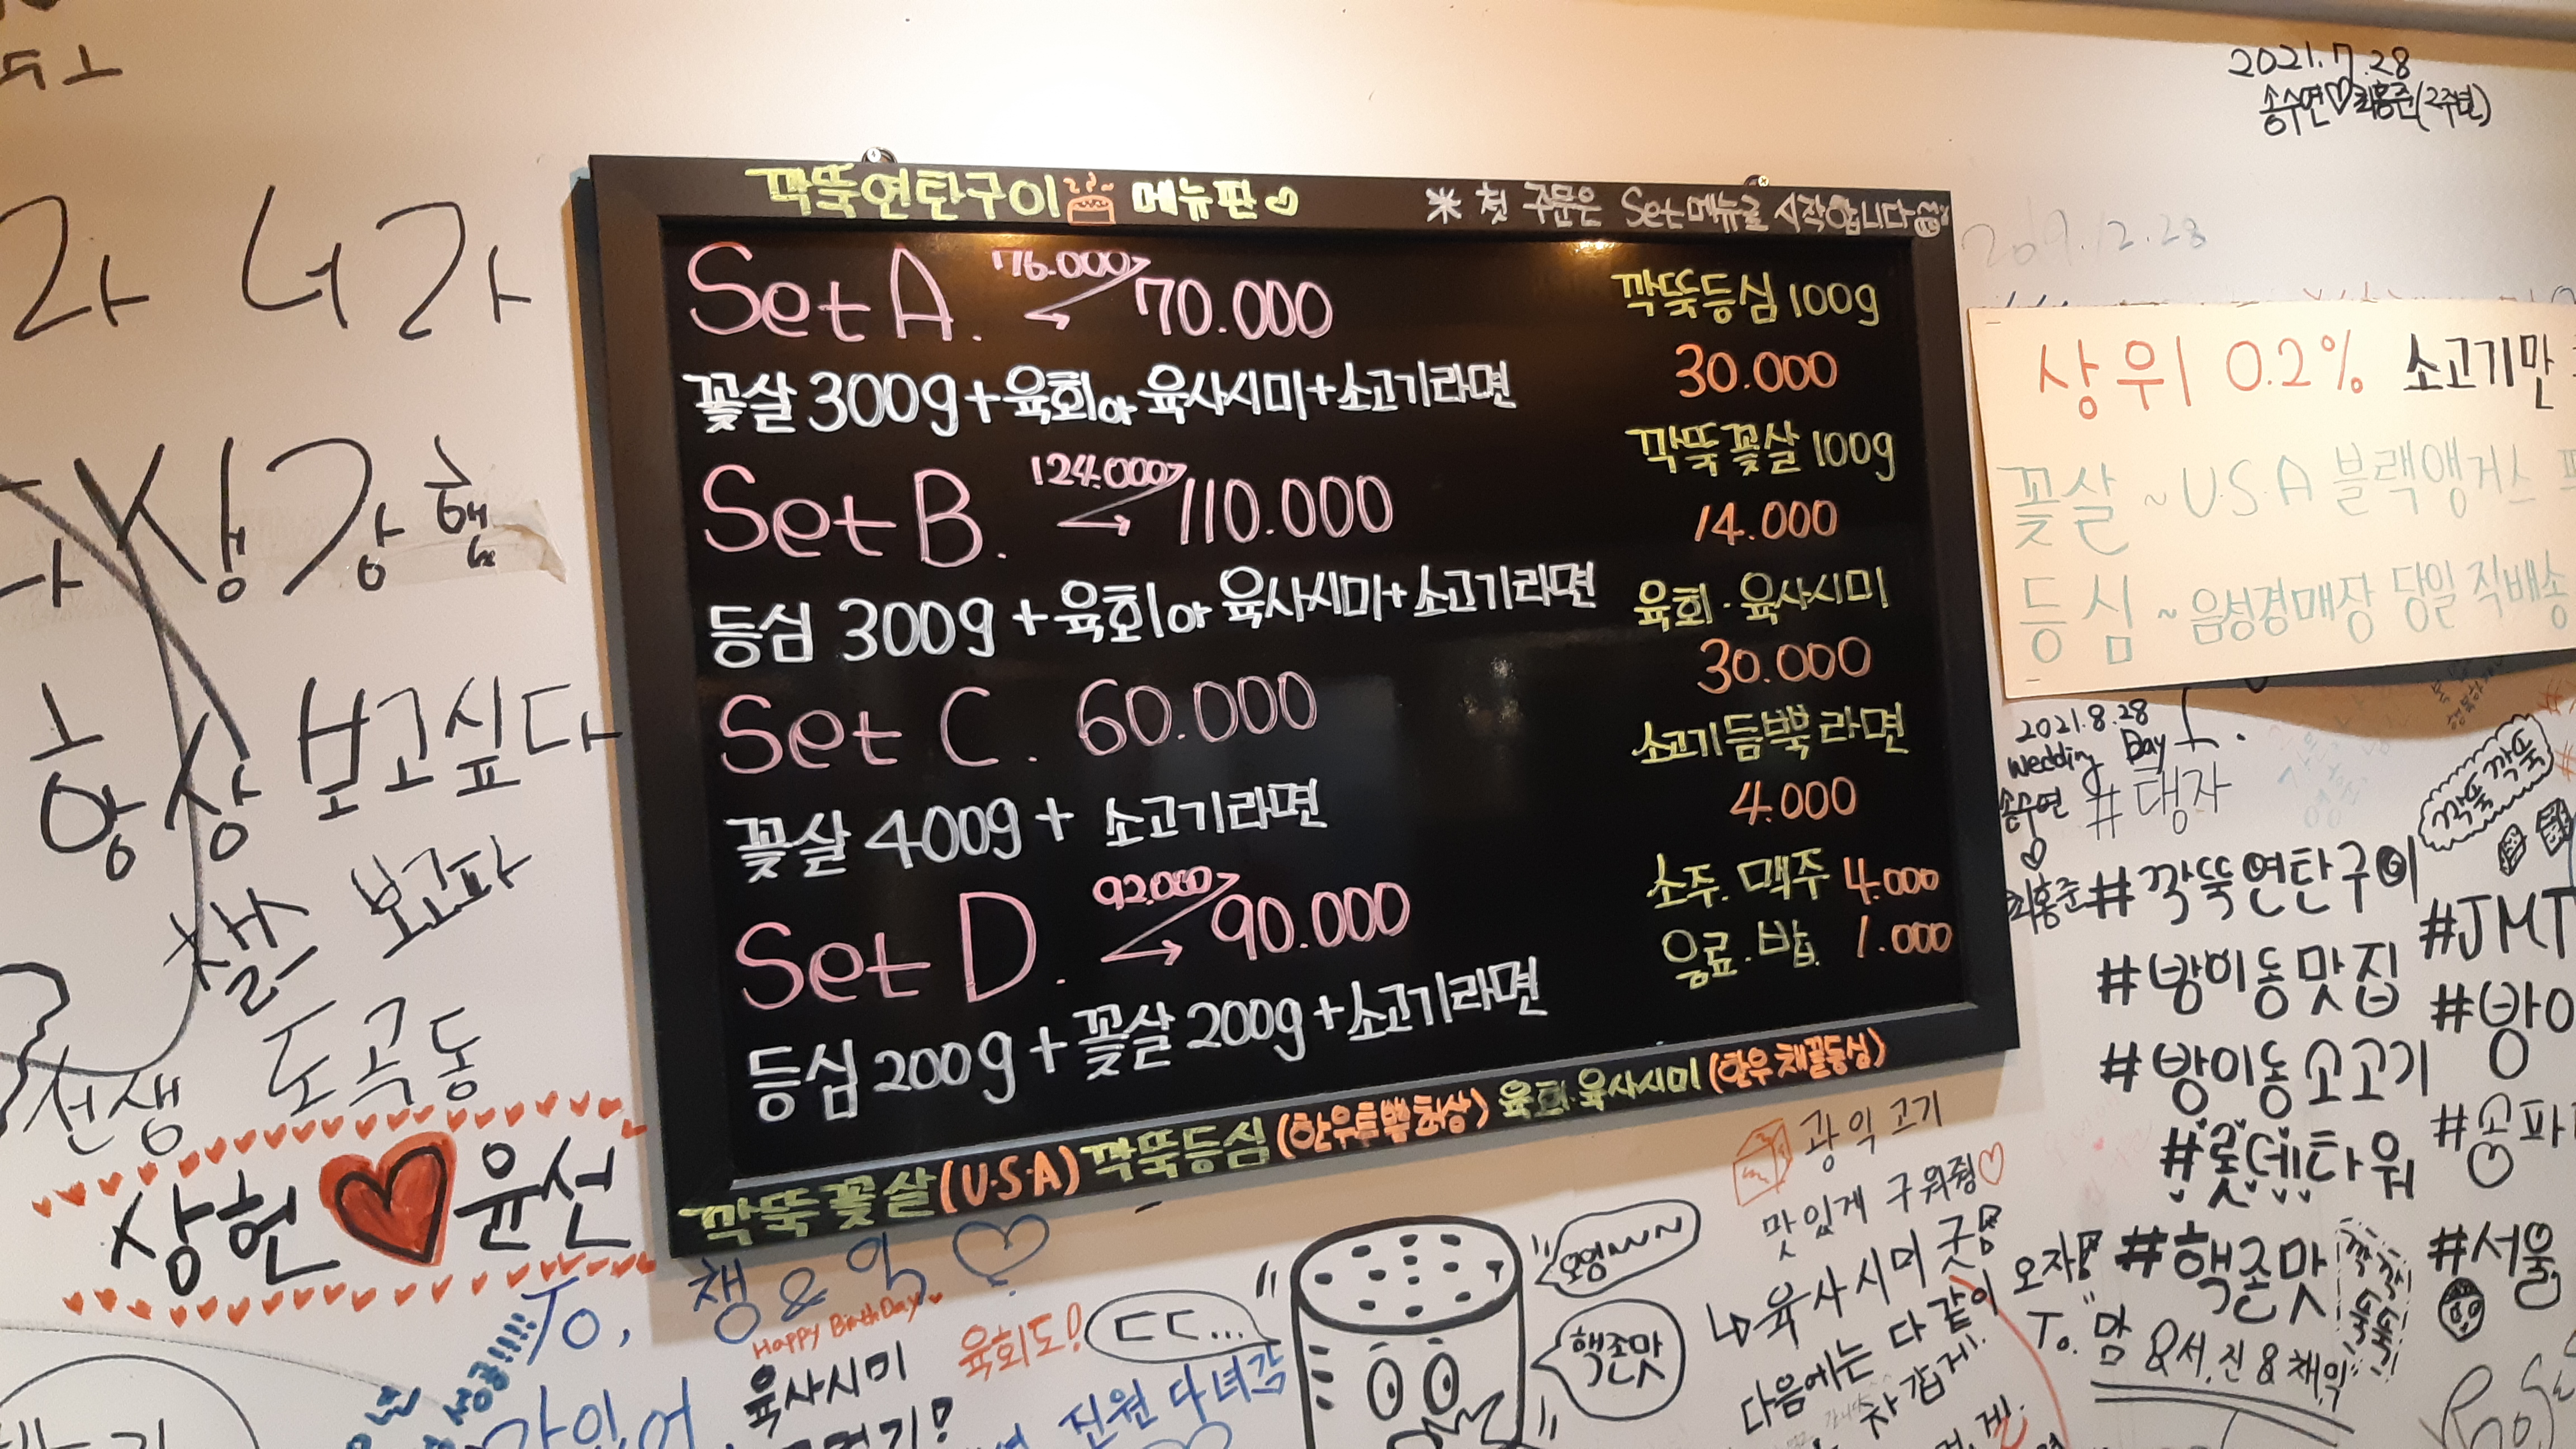 2021.7.28
송수연♡최홍준(2주년)
2019.12.28
깍뚝연탄구이 메뉴판
※ 첫 주문은 Set메뉴로 시작합니다
Set A. 76.000 → 70.000
꽃살 300g+육회or 육사시미+소고기라면
Set B. 124.000 → 110.000
등심 300g + 육회or 육사시미+소고기라면
Set C. 60.000
꽃살 400g + 소고기라면
Set D. 92.000 → 90.000
등심 200g + 꽃살 200g + 소고기라면
깍뚝등심 100g
30.000
깍뚝꽃살 100g
14.000
육회·육사시미
30.000
소고기듬뿍라면
4.000
소주. 맥주 4.000
음료.밥. 1.000
깍뚝꽃살(U·S·A) 깍뚝등심(한우투쁠최상) 육회·육사시미(한우채끝등심)
상위 0.2% 소고기만
꽃살 ~U·S·A 블랙앵거스
등심 ~음성경매장 당일 직배송
항상 보고싶다
보고파
도곡동
상헌 ♥ 윤선
2021.8.28
Wedding Day
송수연
♡
최홍준
#탱자
깍뚝깍뚝
#깍뚝연탄구이
#JMT
#방이동맛집
#방이동소고기
#롯데타워
#핵존맛
#서울
챙&익♡
Happy BirthDay
육사시미
육회도!
ㄷㄷ...
진원 다녀감
핵존맛
광익 고기
맛있게 구워줭♡
육사시미 굿
다음에는 다 같이
오자!
To. 맘 &서.진&채익